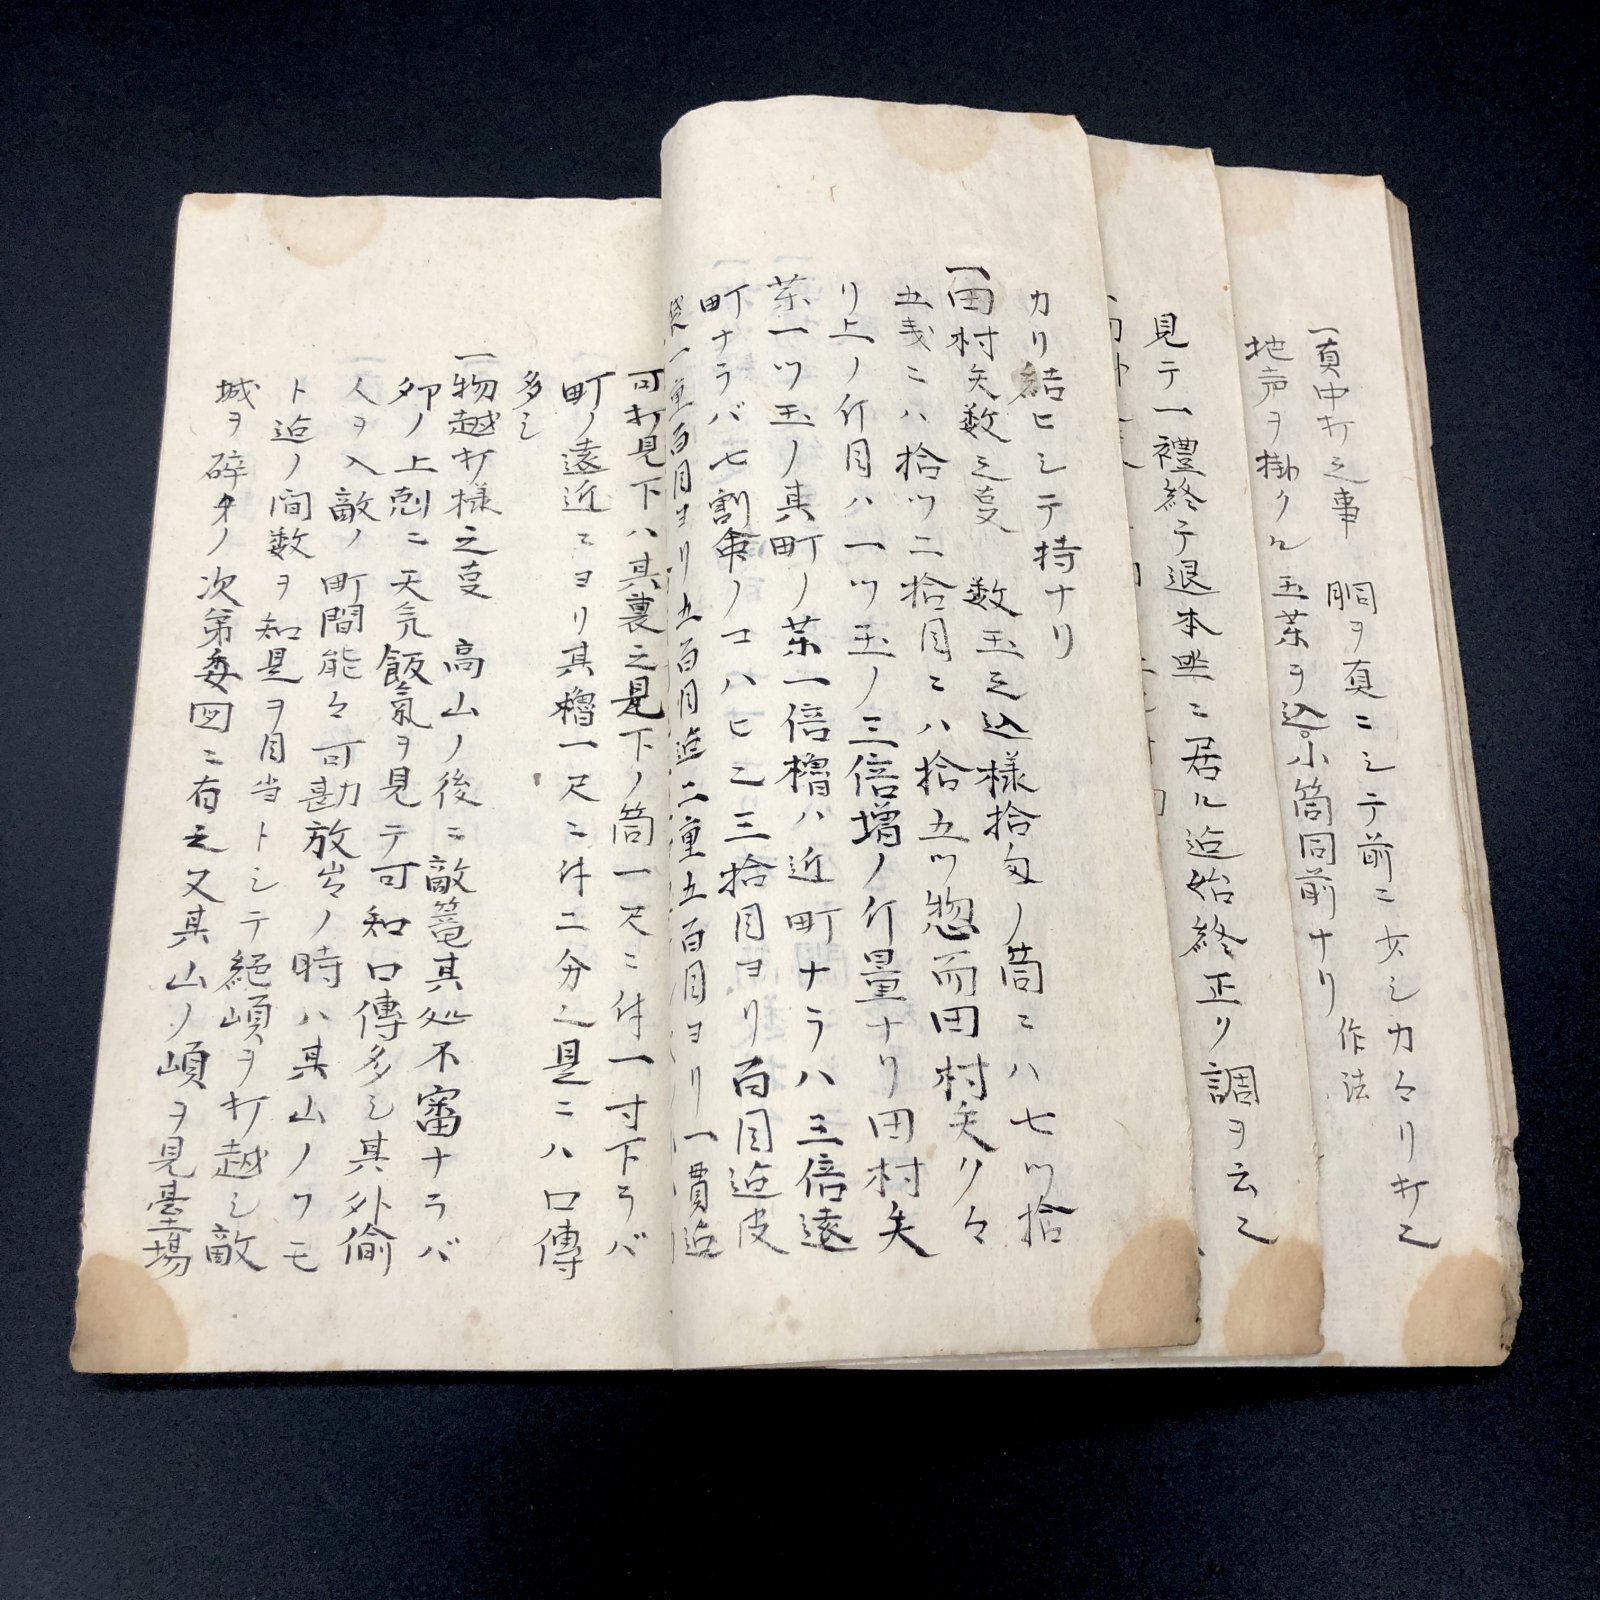 一真中打之事 胴ヲ真ニシテ前ニ
地声ヲ掛クル玉薬ヲ込小筒同前ナリ 作法
見テ一禮終テ退本座ニ居ル迄始終正リ調ヲ云
カリ結ヒシテ持ナリ
一田村矢数之㕝 数玉之込様拾匁ノ筒ニハ七ツ拾
五匁ニハ拾ツ二拾目ニハ拾五ツ惣而田村矢リノ々
リ上ノ斤目ハ一ツ玉ノ三倍増ノ斤量ナリ田村矢
薬一ツ玉ノ其町ノ薬一倍櫓ハ近町ナラハ三倍遠
町ナラバ七割 三拾目ヨリ百目迄皮
袋一重百目ヨリ五百目迄二重五百目ヨリ一貫迄
可打見下ハ其裏之見下ノ筒一尺ニ付一寸下ラバ
町ノ遠近ニヨリ其櫓一尺ニ付二分之是ニハ口傳
多シ
一物越打様之㕝 高山ノ後ニ敵篭其処不審ナラバ
夘ノ上剋ニ天氣飯氣ヲ見テ可知口傳多シ其外偷
人ヲ入敵ノ町間能々可勘放出ノ時ハ其山ノフモ
ト迄ノ間数ヲ知是ヲ目当トシテ絶頂ヲ打越シ敵
城ヲ碎クノ次第委図ニ有之又其山ノ頂ヲ見臺場